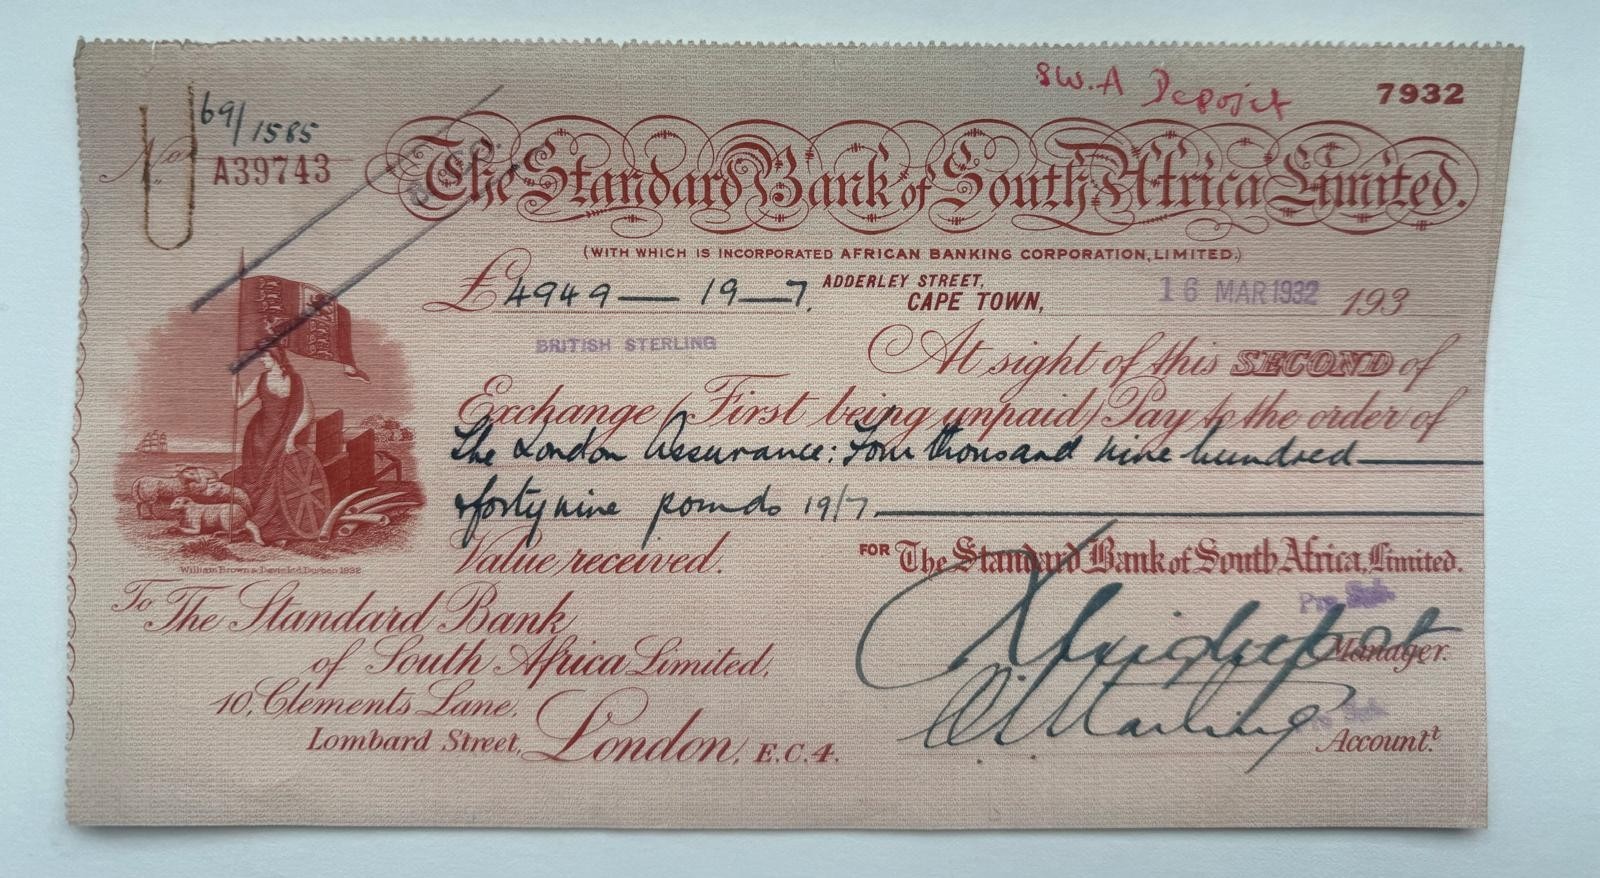 S.W.A Deposit
7932
69/1585
No. A39743
The Standard Bank of South Africa Limited.
(WITH WHICH IS INCORPORATED AFRICAN BANKING CORPORATION, LIMITED.)
£4949 — 19 — 7.
ADDERLEY STREET,
CAPE TOWN, 16 MAR 1932 193
BRITISH STERLING
At sight of this SECOND of
Exchange (First being unpaid) Pay to the order of
The London Assurance: Four thousand nine hundred
& forty nine pounds 19/7
Value received.
FOR The Standard Bank of South Africa, Limited.
William Brown & Davis Ltd. Durban 1932
To The Standard Bank
of South Africa Limited,
10, Clements Lane,
Lombard Street, London, E.C.4.
Pro Sub.
Manager.
Sub.
Account.t